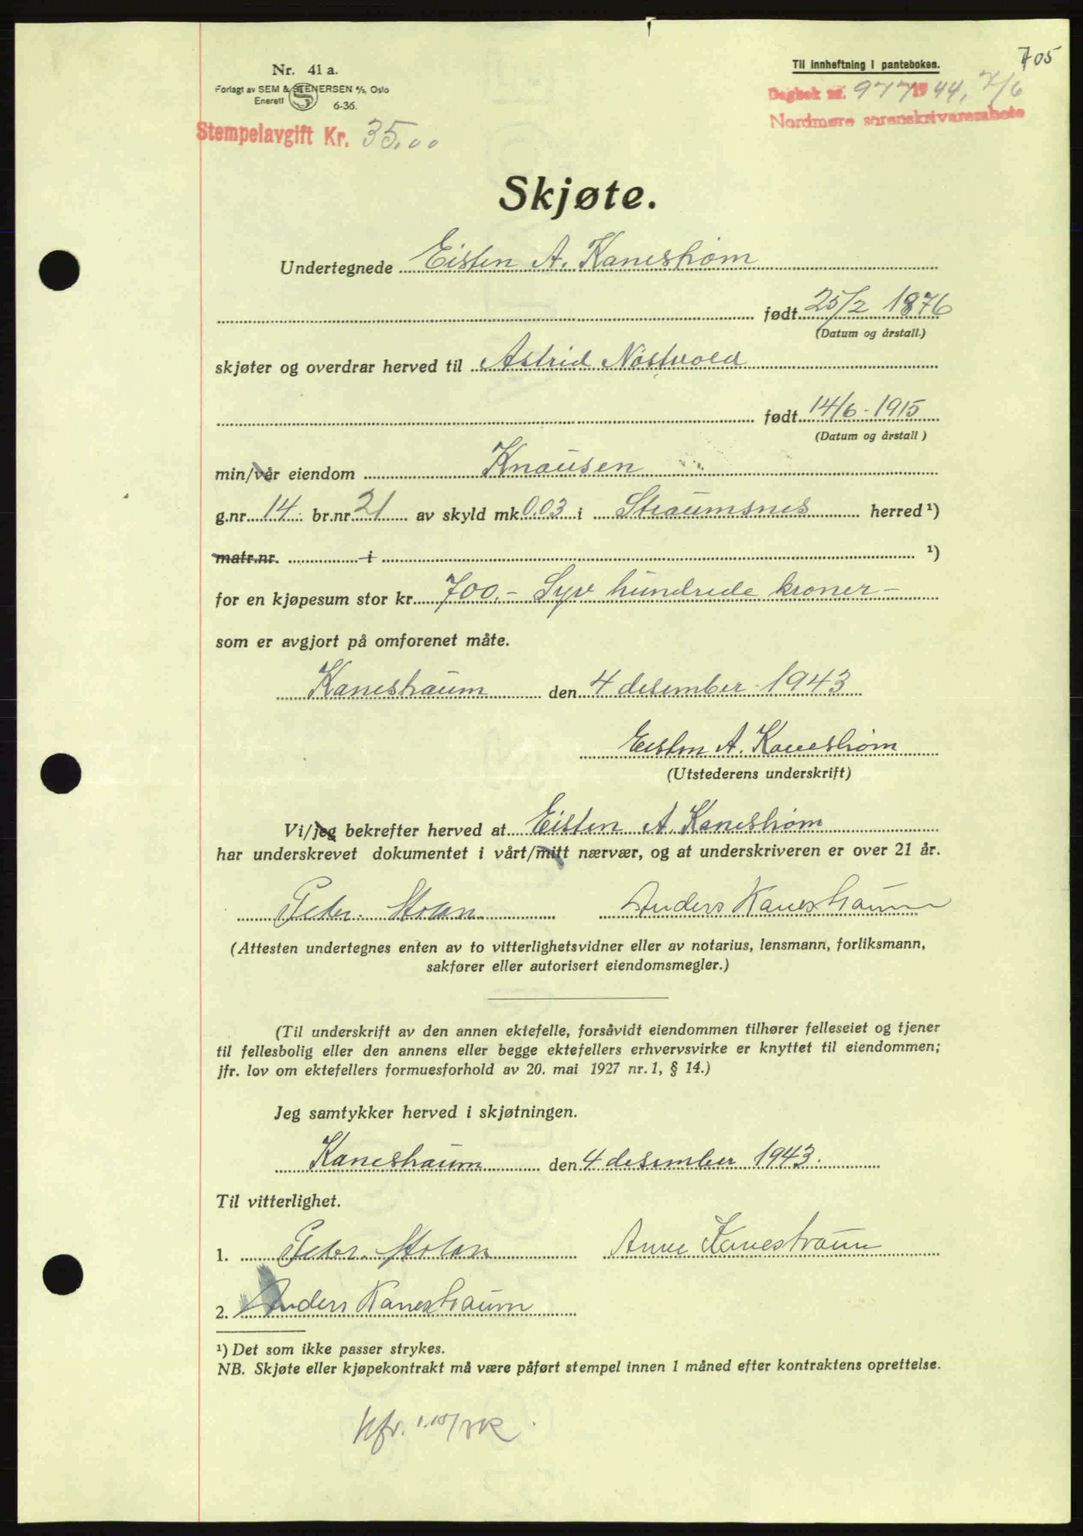 705
Nr. 41 a.
Forlagt av SEM & STENERSEN A/S, Oslo
Enerett S 6-36.
Stempelavgift Kr. 35.00
Til innheftning i panteboken.
Dagbok nr. 977 1944, 7/6
Nordmøre sorenskriverembete
Skjøte.
Undertegnede Eisten A. Kanestrøm
født 25/2 1876
(Datum og årstall.)
skjøter og overdrar herved til Astrid Nostvold
født 14/6-1915
(Datum og årstall)
min/vår eiendom Knausen
g.nr. 14 br.nr 21 av skyld mk 0.03 i Straumsnes herred ¹)
matr.nr. i ¹)
for en kjøpesum stor kr. 700,- Syv hundrede kroner -
som er avgjort på omforenet måte.
Kanestraum den 4 desember 1943
Eisten A. Kanestrøm
(Utstederens underskrift)
Vi/jeg bekrefter herved at Eisten A Kanestrøm
har underskrevet dokumentet i vårt/mitt nærvær, og at underskriveren er over 21 år.
Peder Stolan Anders Kanestraum
(Attesten undertegnes enten av to vitterlighetsvidner eller av notarius, lensmann, forliksmann,
sakfører eller autorisert eiendomsmegler.)
(Til underskrift av den annen ektefelle, forsåvidt eiendommen tilhører felleseiet og tjener
til fellesbolig eller den annens eller begge ektefellers erhvervsvirke er knyttet til eiendommen;
jfr. lov om ektefellers formuesforhold av 20. mai 1927 nr. 1, § 14.)
Jeg samtykker herved i skjøtningen.
Kanestraum den 4 desember 1943.
Til vitterlighet.
1. Peder Stolan Anne Kanestraum
2. Anders Kanestraum
¹) Det som ikke passer strykes.
NB. Skjøte eller kjøpekontrakt må være påført stempel innen 1 måned efter kontraktens oprettelse.